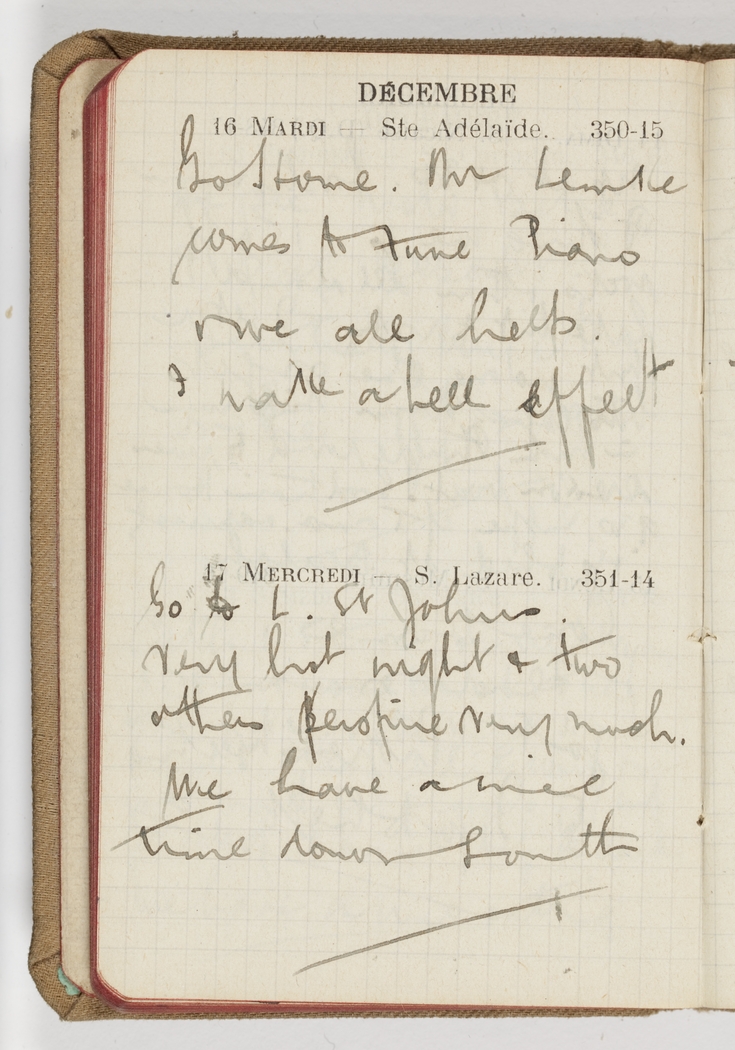 DÉCEMBRE
16 MARDI — Ste Adélaïde. 350-15
Go Home. Mr Lemke
comes to Tune Piano
we all help.
I make a bell effect
17 MERCREDI — S. Lazare. 351-14
Go to L. St Johns.
Very hot night & two
others perspire very much.
We have a nice
time down South